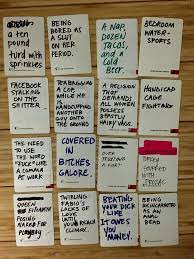 a ten
pound
turd with
sprinkles
BEING
BORED AS
A SLUT
ON HER
PERIOD.
A NAP,
DOZEN
TACOS,
and a
COLD
BEER.
BEDROOM
WATER-
SPORTS
FACEBOOK
STALKING
ON THE
SHITTER
TEABAGGING
A COP,
WHILE HE
IS
HANDCUFFING
ANOTHER
GUY ONTO
THE GROUND
A RELIGION
THAT
DEMANDS
ALL WOMEN
POSSESS
BEASTLY
HAIRY VAGS.
HANDICAP
CAGE
FIGHTING
THE NEED
TO USE
THE WORD
"FUCK" LIKE
A COMMA AT
WORK
COVERED
IN
BITCHES
GALORE.
OVER
FOR A
STUFFED
WITH
QUEEN
ELIZABETH
POSING
NAKED FOR
TWIRLING
FABIO'S
LOCKS OF
LOVE
UNTIL
YOU REACH
CLIMAX.
BEATING
YOUR DICK
LIKE IT
OWES
YOU
MONEY.
BEING
REINCARNATED
AS AN
ANAL
BEAD